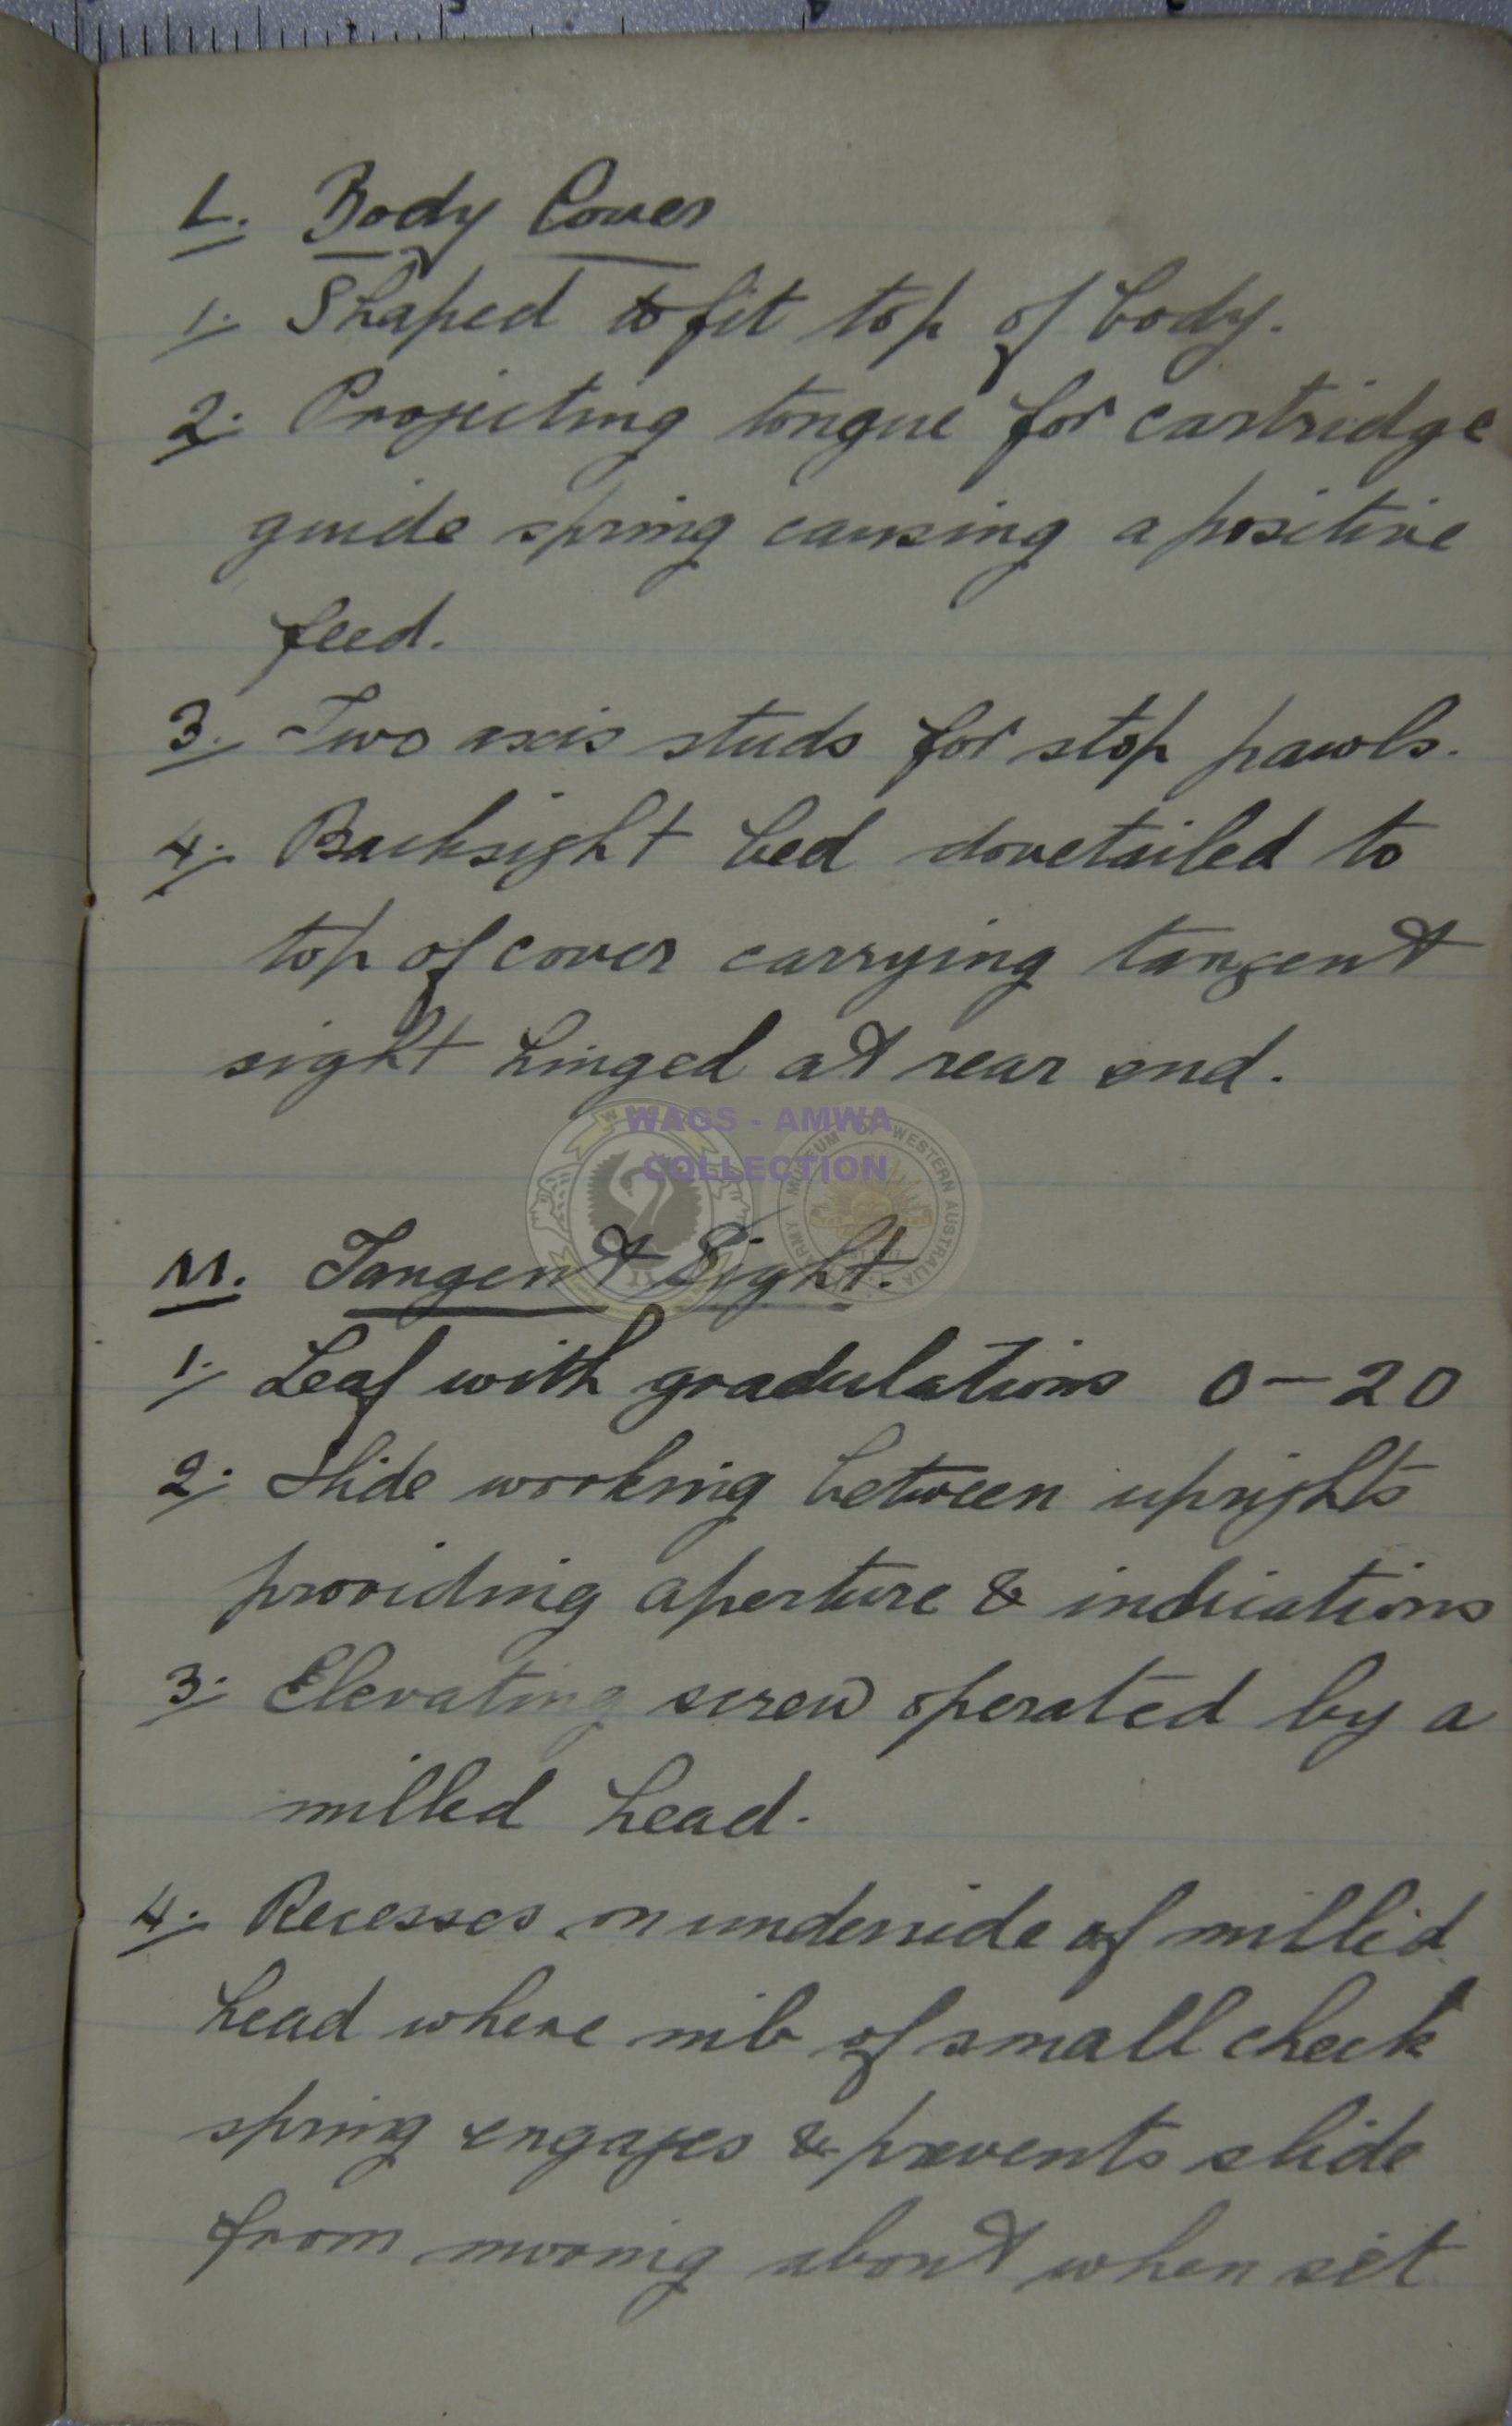 L. Body Cover
1. Shaped to fit top of body.
2. Projecting tongue for cartridge
guide spring causing a positive
feed.
3. Two axis studs for stop pawls.
4. Backsight bed dovetailed to
top of cover carrying tangent
sight hinged at rear end.
WAGS - AMWA
COLLECTION
M. Tangent Sight.
1. Leaf with gradulations 0-20
2. Slide working between uprights
providing aperture & indications
3. Elevating screw operated by a
milled head.
4. Recesses on underside of milled
head where nib of small check
spring engages & prevents slide
from moving about when set